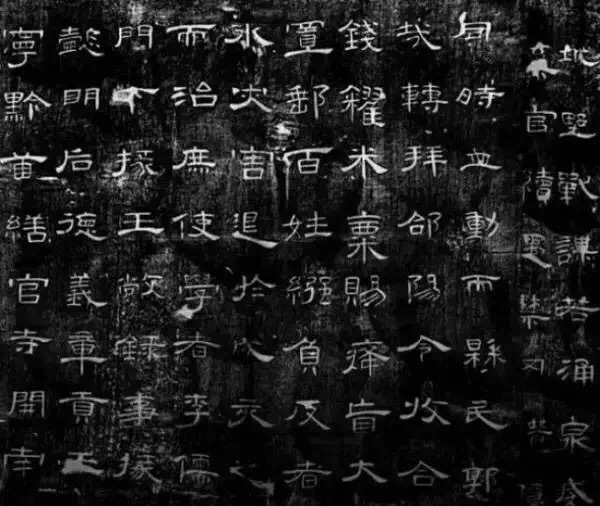 城野戰謀若涌泉威
棄官續遇禁罔潛
同時並動而縣民郭
哉轉拜郃陽令收合
錢糴米粟賜癃盲大
置郵百姓繈負反者
水災害退於戊亥之
而治庶使學者李儒
門下掾王敞錄事掾
懿明后德義章貢王
寧黔首繕官寺開南